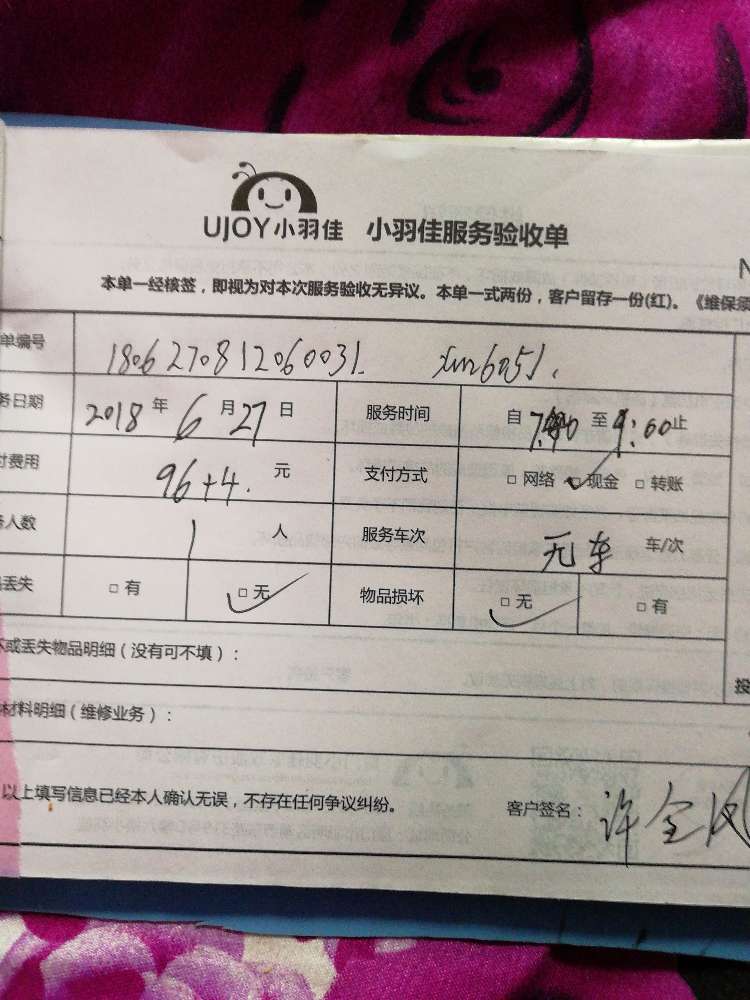 UJOY小羽佳 小羽佳服务验收单
N
本单一经核签，即视为对本次服务验收无异议。本单一式两份，客户留存一份(红)。《维保须
单编号 1806270812060031 xm6051.
务日期 2018 年 6 月 27 日 服务时间 自 至 9:00止
付费用 96+4. 元 支付方式 □ 网络 □ 现金 □ 转账
人数 1 人 服务车次 无车 车/次
丢失 □ 有 □ 无 物品损坏 □ 无 □ 有
坏或丢失物品明细（没有可不填）：
材料明细（维修业务）：
投
以上填写信息已经本人确认无误，不存在任何争议纠纷。 客户签名： 许全凤